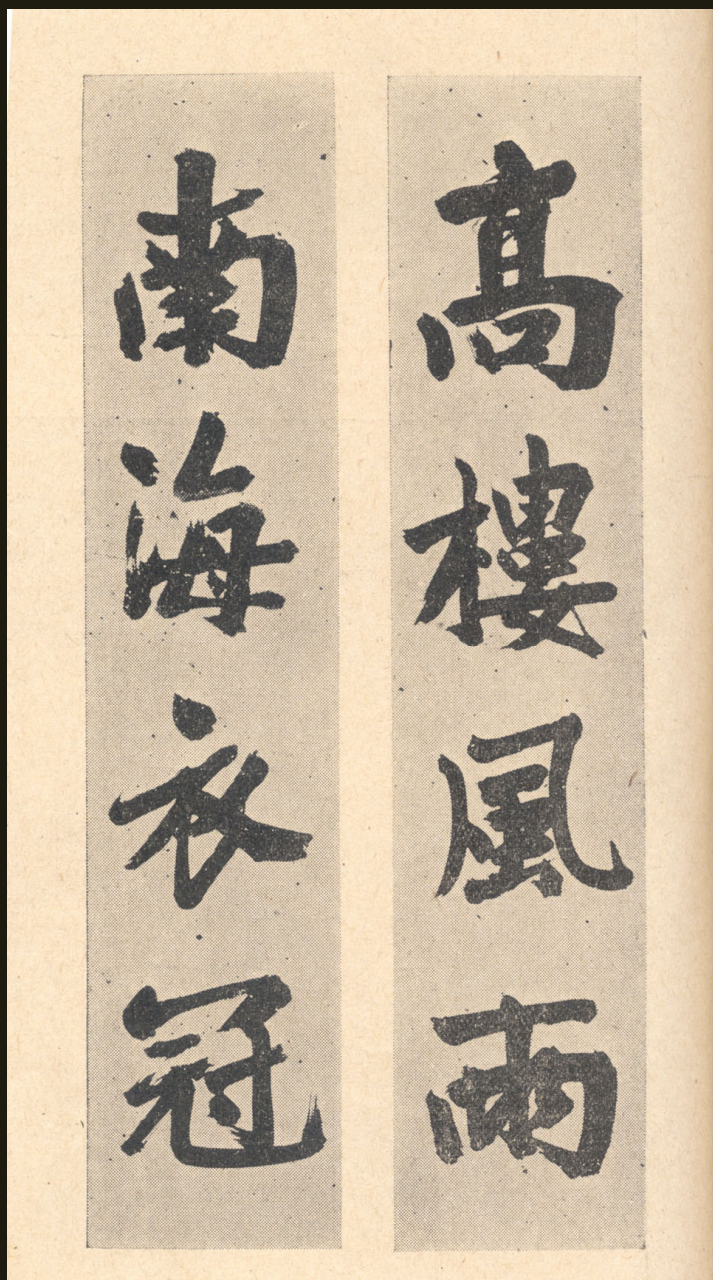 高樓風雨
南海衣冠